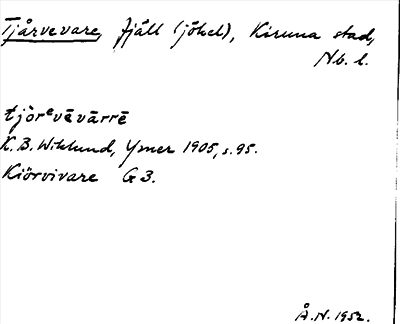 Tjårvevare, fjäll (jökel), Kiruna stad,
Nb. l.
tjòrᵉvēvārrē
K. B. Wiklund, Ymer 1905, s. 95.
Kiörvivare G 3.
Å. N. 1952.